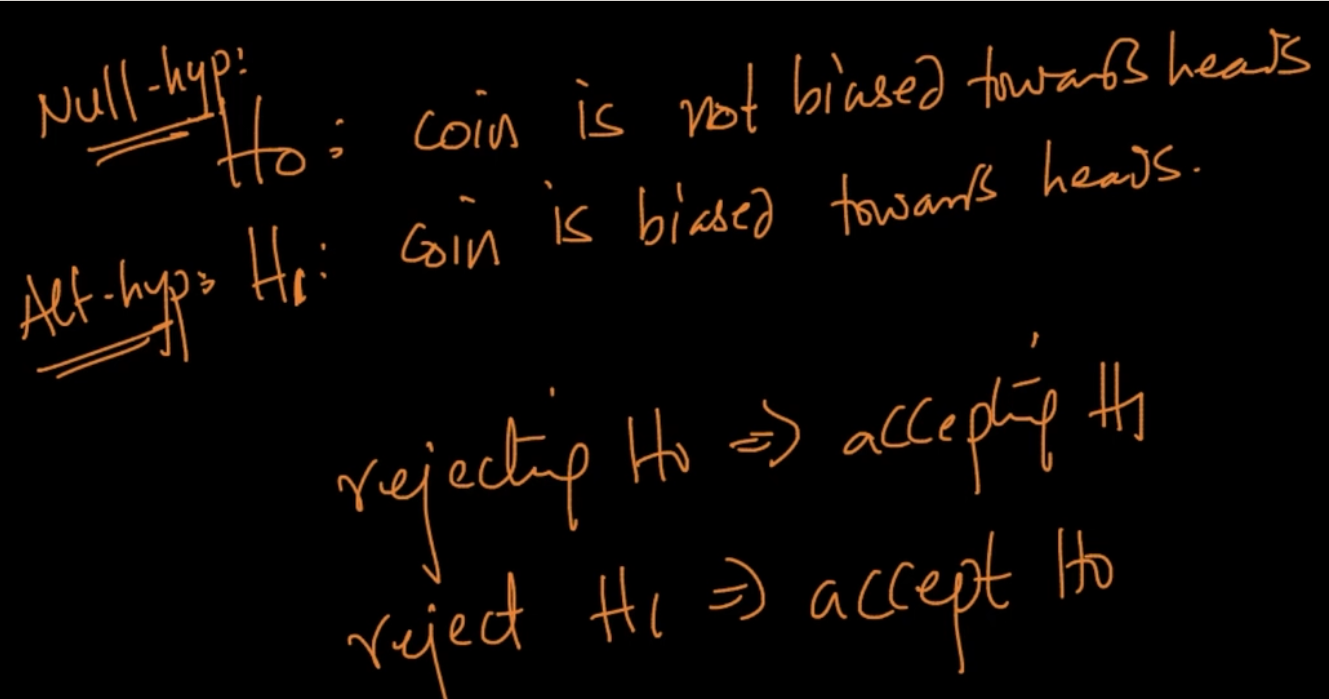 Null-hyp:
H0: coin is not biased towards heads
Alt-hyp: H1: Coin is biased towards heads.
rejecting H0 => accepting H1
reject H1 => accept H0